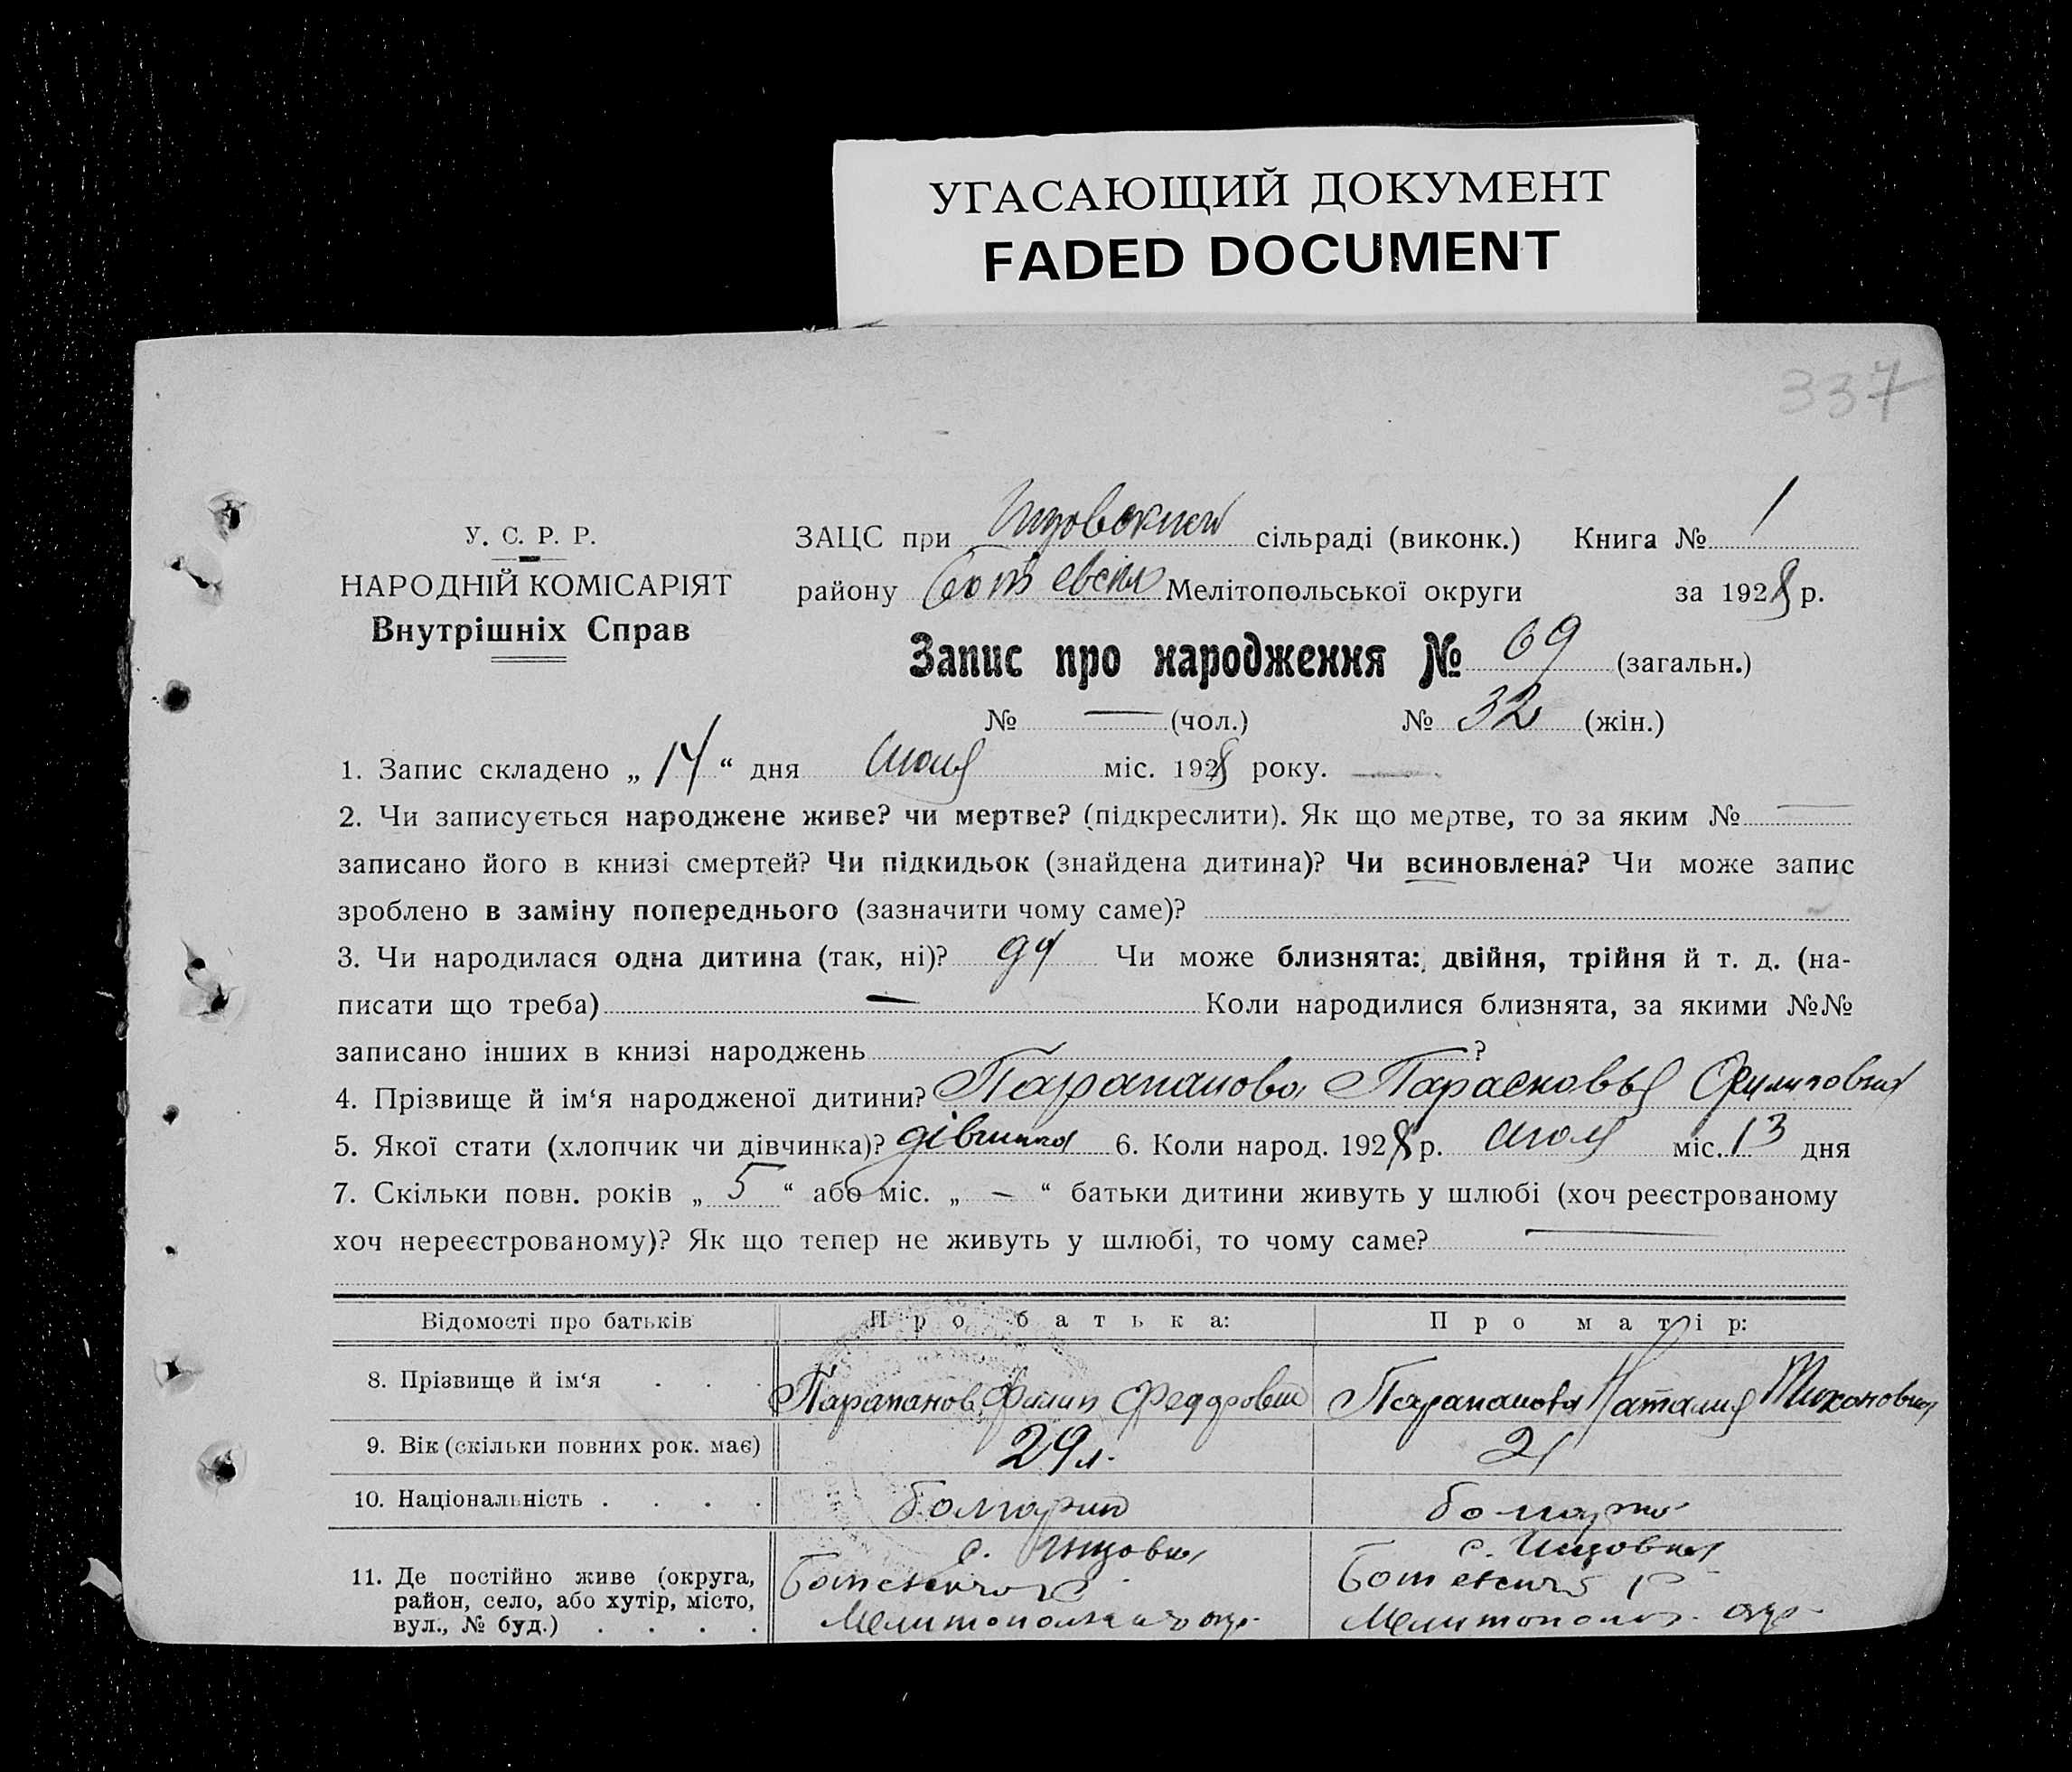 УГАСАЮЩИЙ ДОКУМЕНТ
FADED DOCUMENT
337
У. С. Р. Р.
НАРОДНІЙ КОМІСАРІЯТ
Внутрішніх Справ
ЗАЦС при сільраді (виконк.) Книга № 1
району Ботіевськ Мелітопольської округи за 1928 р.
Запис про народження № 69 (загальн.)
№ — (чол.) № 32 (жін.)
1. Запис складено „ 14 “ дня июля міс. 1928 року. —
2. Чи записується народжене живе? чи мертве? (підкреслити). Як що мертве, то за яким № —
записано його в книзі смертей? Чи підкидьок (знайдена дитина)? Чи всиновлена? Чи може запис
зроблено в заміну попереднього (зазначити чому саме)?
3. Чи народилася одна дитина (так, ні)? Чи може близнята: двійня, трійня й т. д. (на-
писати що треба) — Коли народилися близнята, за якими №№
записано інших в книзі народжень ?
4. Прізвище й ім‘я народженої дитини? Парапанова Парасковья Филиповна
5. Якої стати (хлопчик чи дівчинка)? дівчинка 6. Коли народ. 1928 р. июля міс. 13 дня
7. Скільки повн. років „ 5 “ або міс. „ — “ батьки дитини живуть у шлюбі (хоч реєстрованому
хоч нереєстрованому)? Як що тепер не живуть у шлюбі, то чому саме? —
Відомості про батьків Про батька: Про матір:
8. Прізвище й ім‘я . . . Парапанов Филип Феддрович Парапанова Наталия Тихоновна
9. Вік (скільки повних рок. має) 29 л. 21
10. Національність . . . .
с. с.
11. Де постійно живе (округа,
район, село, або хутір, місто,
вул., № буд.) . . . . окр. окр.